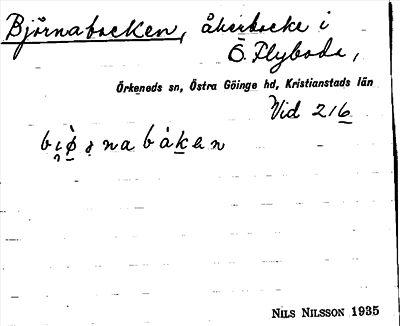 Björnabacken, åkerbacke i
Ö. Flyboda,
Örkeneds sn, Östra Göinge hd, Kristianstads län
Vid 216
NILS NILSSON 1935